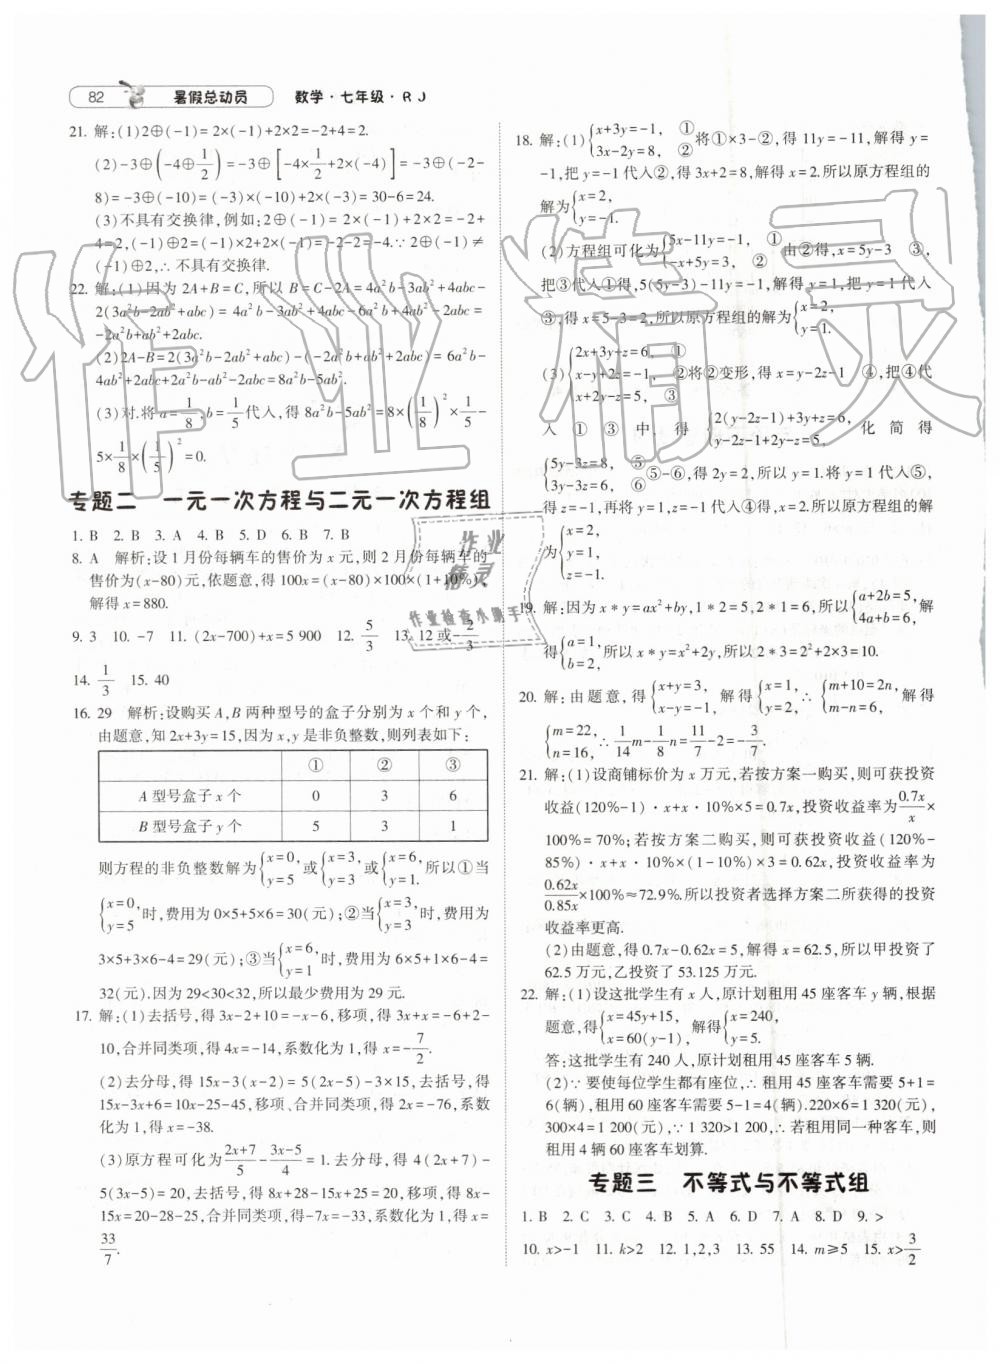 82 暑假总动员 数学·七年级·RJ
21. 解:(1)2⊕(-1)=2×(-1)+2×2=-2+4=2.
(2)-3⊕(-4⊕1/2)=-3⊕[-4×1/2+2×(-4)]=-3⊕(-2-
8)=-3⊕(-10)=(-3)×(-10)+2×(-3)=30-6=24.
(3)不具有交换律,例如:2⊕(-1)=2×(-1)+2×2=-2+
4=2,(-1)⊕2=(-1)×2+2×(-1)=-2-2=-4.∵2⊕(-1)≠
(-1)⊕2,∴不具有交换律.
22. 解:(1)因为2A+B=C,所以B=C-2A=4a²b-3ab²+4abc-
2(3a²b-2ab²+abc)=4a²b-3ab²+4abc-6a²b+4ab²-2abc=
-2a²b+ab²+2abc.
(2)2A-B=2(3a²b-2ab²+abc)-(-2a²b+ab²+2abc)=6a²b-
4ab²+2abc+2a²b-ab²-2abc=8a²b-5ab².
(3)对.将a=1/8,b=1/5代入,得8a²b-5ab²=8×(1/8)²×1/5-
5×1/8×(1/5)²=0.
专题二 一元一次方程与二元一次方程组
1. B 2. B 3. A 4. B 5. D 6. B 7. B
8. A 解析:设1月份每辆车的售价为x元,则2月份每辆车的
售价为(x-80)元,依题意,得100x=(x-80)×100×(1+10%),
解得x=880.
9. 3 10. -7 11. (2x-700)+x=5 900 12. 5/3 13. 12或-2/3
14. 1/3 15. 40
16. 29 解析:设购买A,B两种型号的盒子分别为x个和y个,
由题意,知2x+3y=15,因为x,y是非负整数,则列表如下:
① ② ③
A型号盒子x个 0 3 6
B型号盒子y个 5 3 1
则方程的非负整数解为{x=0, y=5 或{x=3, y=3 或{x=6, y=1. 所以①当
{x=0, y=5 时,费用为0×5+5×6=30(元);②当{x=3, y=3 时,费用为
3×5+3×6-4=29(元);③当{x=6, y=1 时,费用为6×5+1×6-4=
32(元).因为29<30<32,所以最少费用为29元.
17. 解:(1)去括号,得3x-2+10=-x-6,移项,得3x+x=-6+2-
10,合并同类项,得4x=-14,系数化为1,得x=-7/2.
(2)去分母,得15x-3(x-2)=5(2x-5)-3×15,去括号,得
15x-3x+6=10x-25-45,移项、合并同类项,得2x=-76,系数
化为1,得x=-38.
(3)原方程可化为(2x+7)/5-(3x-5)/4=1.去分母,得4(2x+7)-
5(3x-5)=20,去括号,得8x+28-15x+25=20,移项,得8x-
15x=20-28-25,合并同类项,得-7x=-33,系数化为1,得x=
33/7.
18. 解:(1){x+3y=-1, ① 3x-2y=8, ② 将①×3-②,得11y=-11,解得y=
-1,把y=-1代入②,得3x+2=8,解得x=2.所以原方程组的
解为{x=2, y=-1.
(2)方程组可化为{5x-11y=-1, ① -x+5y=3, ② 由②得,x=5y-3 ③,
把③代入①得,5(5y-3)-11y=-1,解得y=1,把y=1代入
③,得x=5-3=2,所以原方程组的解为{x=2, y=1.
(3){2x+3y+z=6, ① x-y+2z=-1, ② x+2y-z=5, ③ 将②变形,得x=y-2z-1 ④,把④代
入①③中,得{2(y-2z-1)+3y+z=6, y-2z-1+2y-z=5, 化简得
{5y-3z=8, ⑤ 3y-3z=6, ⑥ ⑤-⑥,得2y=2,所以y=1.把y=1代入⑤,
得z=-1,再将y=1,z=-1代入④,得x=2.所以原方程组的解
为{x=2, y=1, z=-1.
19. 解:因为x*y=ax²+by,1*2=5,2*1=6,所以{a+2b=5, 4a+b=6, 解
得{a=1, b=2, 所以x*y=x²+2y,所以2*3=2²+2×3=10.
20. 解:由题意,得{x+y=3, x-y=-1, 解得{x=1, y=2, ∴{m+10=2n, m-n=6,
{m=22, n=16, ∴1/14m-1/8n=11/7-2=-3/7.
21. 解:(1)设商铺标价为x万元,若按方案一购买,则可获投资
收益(120%-1)·x+x·10%×5=0.7x,投资收益率为0.7x/x×
100%=70%;若按方案二购买,则可获投资收益(120%-
85%)·x+x·10%×(1-10%)×3=0.62x,投资收益率为
0.62x/0.85x×100%≈72.9%.所以投资者选择方案二所获得的投资
收益率更高.
(2)由题意,得0.7x-0.62x=5,解得x=62.5,所以甲投资了
62.5万元,乙投资了53.125万元.
22. 解:(1)设这批学生有x人,原计划租用45座客车y辆,根据
题意,得{x=45y+15, x=60(y-1), 解得{x=240, y=5.
答:这批学生有240人,原计划租用45座客车5辆.
(2)∵要使每位学生都有座位,∴租用45座客车需要5+1=
6(辆),租用60座客车需要5-1=4(辆).220×6=1 320(元),
300×4=1 200(元),∵1 320>1 200,∴若租用同一种客车,则
租用4辆60座客车划算.
专题三 不等式与不等式组
1. B 2. C 3. C 4. B 5. A 6. D 7. A 8. D 9. >
10. x>-1 11. k>2 12. 1,2,3 13. 55 14. m≥5 15. x>3/2
作业精灵
作业
精灵
作业检查小助手